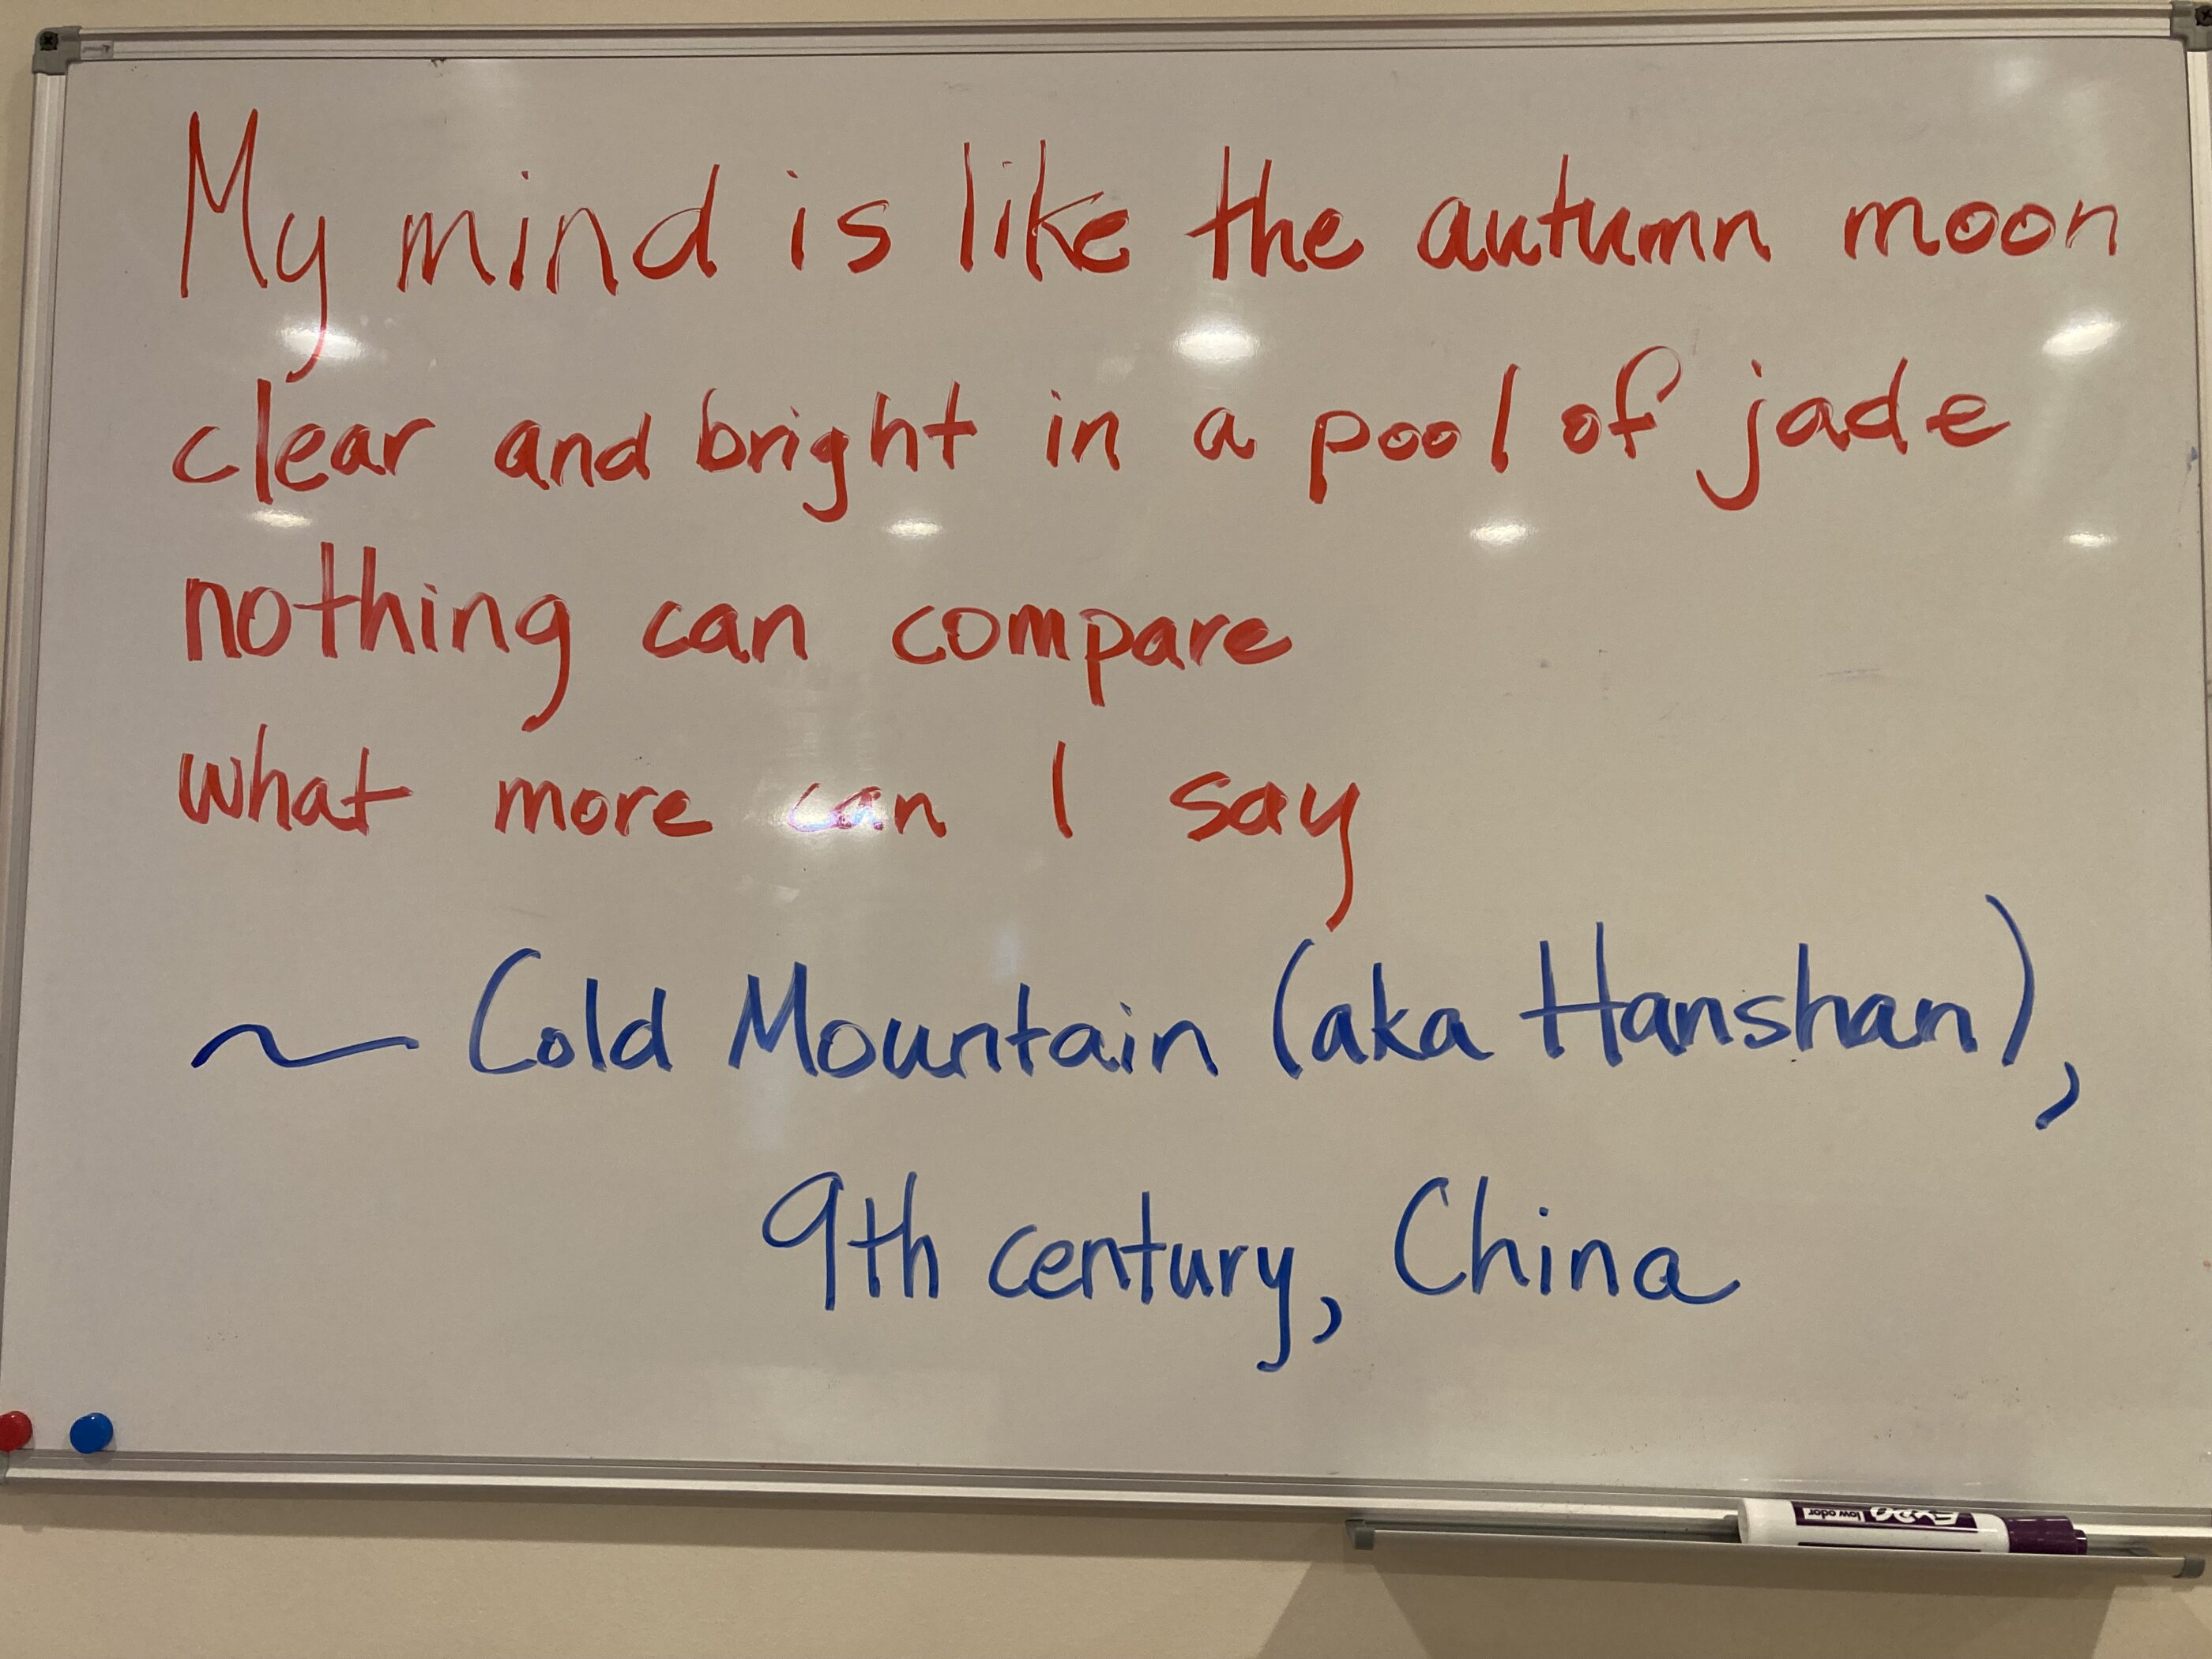 My mind is like the autumn moon
clear and bright in a pool of jade
nothing can compare
what more can I say
~ Cold Mountain (aka Hanshan),
9th century, China
EXPO
low odor